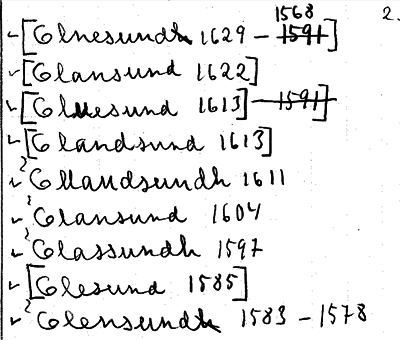 1568 2.
[Olnesundh 1629 – 1591]
[Olansund 1622]
[Oluesund 1613] – 1591]
[Olandsund 1613]
Ollandsundh 1611
Olansund 1604
Olassundh 1597
[Olesund 1585]
Olensundh 1583 – 1578